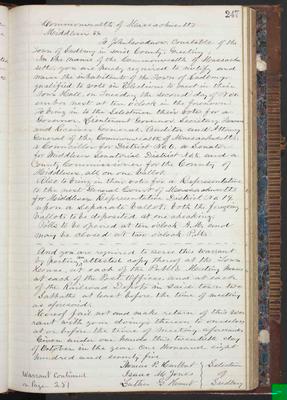 247
Commonwealth of Massachusetts
Middlesex ss
To John Goodnow Constable of the
Town of Sudbury in said County, Greeting
In the name of the Commonwealth of Massachu
setts you are hereby required to notify and
warn the inhabitants of the Town of Sudbury
qualified to vote in Elections to meet in their
Town Hall, on Tuesday the second day of Nov
ember next at ten o'clock in the forenoon
To bring in to the Selectmen, their votes for a
Governor, Lieutenant Governor, Secretary, Treasu
rer and Receiver General, Auditor and Attorney
General of the Commonwealth of Massachusetts
a Councillor for District No 6, a Senator
for Middlesex Senatorial District and a
County Commissioner for the County of
Middlesex, all on one Ballot.
Also to bring in their votes for a Representative
to the next General Court of Massachusetts
for Middlesex Representative District No 19
upon a Separate Ballot; both the foregoing
ballots to be deposited at one
Polls to be opened at ten o'clock A.M. and
may be closed at two o'clock P.M.
And you are required to serve this warrant
by posting an attested copy thereof at the Town
House, at each of the Public Meeting houses
at each of the Post Offices, and at each
of the Railroad Depots in said town two
Sabbaths at least before the time of meeting
as aforesaid.
Hereof fail not and make return of this War
rant with your doings thereon to ourselves
at or before the time of Meeting aforesaid
Given under our hands this twentieth day
of October in the year One thousand eight
hundred and seventy five
Thomas P. Hurlbut } Selectmen
Isaac M. Jones } of
Luther G. Hunt } Sudbury
Warrant Continued
on Page 251